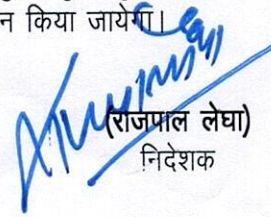 न किया जायेगा।
(राजपाल लेघा)
निदेशक